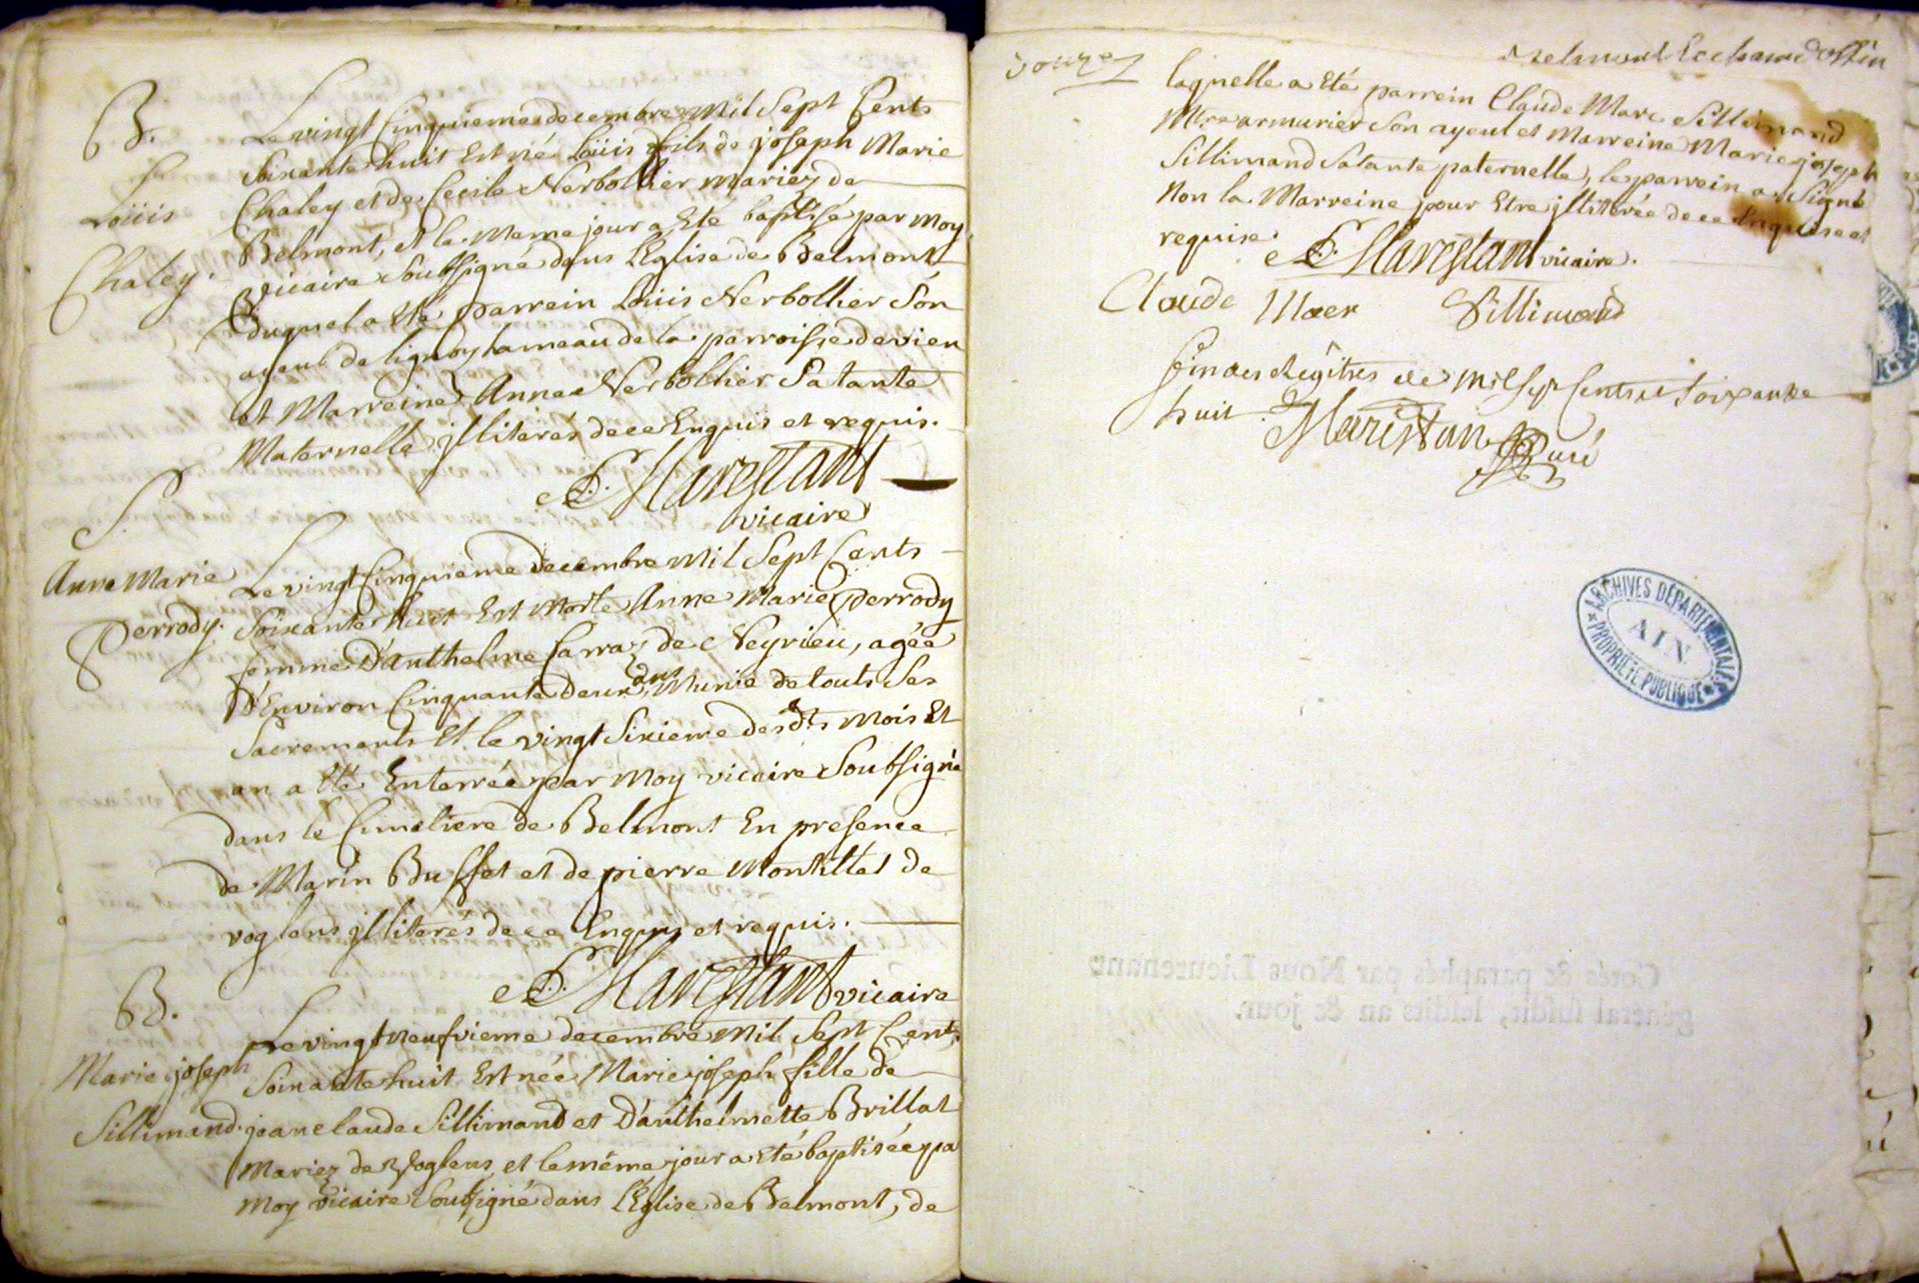 B.
Loüis
Chaley.
Le vingt Cinquieme decembre Mil Sept Cents
Soixante huit Est né Loüis fils de joseph Marie
Chaley et de Cecile Nerbollier mariez de
Belmont, et le Meme jour a Eté baptisé par moy
vicaire Soubsigné dans L'Eglise de Belmont
duquel a Eté parrein Loüis Nerbollier Son
ayeul de lignoy hameau de la parroisse de vieu
et Marreine Anne Nerbollier Sa tante
Maternelle jlliterés de ce Enquis et requis.
Marestant
vicaire
S.
Anne Marie
Perrody.
Le vingt Cinquieme decembre Mil Sept Cents
Soixante huit Est Morte Anne Marie Perrody
femme D'anthelme Carraz de Neyrieu, agée
D'Environ Cinquante deux ans, Munie de touts Ses
Sacrements Et le vingt Sixieme desdts Mois Et
an a Eté Enterrée par Moy vicaire Soubsigné
dans le Cimetiere de Belmont En presence
de Marin Buffet et de pierre Montillet de
voglens jlliterés de ce Enquis et requis.
Marestant vicaire
B.
Marie joseph
Sillimand.
Le vingt Neufvieme decembre Mil Sept Cents
Soixante huit Est née Marie joseph fille de
jean claude Sillimand et D'anthelmette Brillat
Mariez de Voglens et le même jour a Eté baptisée pa
Moy vicaire Soubsigné dans L'Eglise de Belmont, de
douze
laquelle a Eté parrein Claude Marc Sillimand
Mre armurier Son ayeul et Marreine Marie joseph
Sillimand Sa tante paternelle, le parrein a Signé
Non la Marreine pour Etre jlliterée de ce Enquise et
requise.
Marestant vicaire.
Claude Marc Sillimand
fin des Regîtres de Mil Sept Cents et Soixante
huit
Marestan Curé
ARCHIVES DÉPARTEMENTALES
AIN
PROPRIÉTÉ PUBLIQUE
Cotés & paraphés par Nous Lieutenant
général susdit, lesdits an & jour.